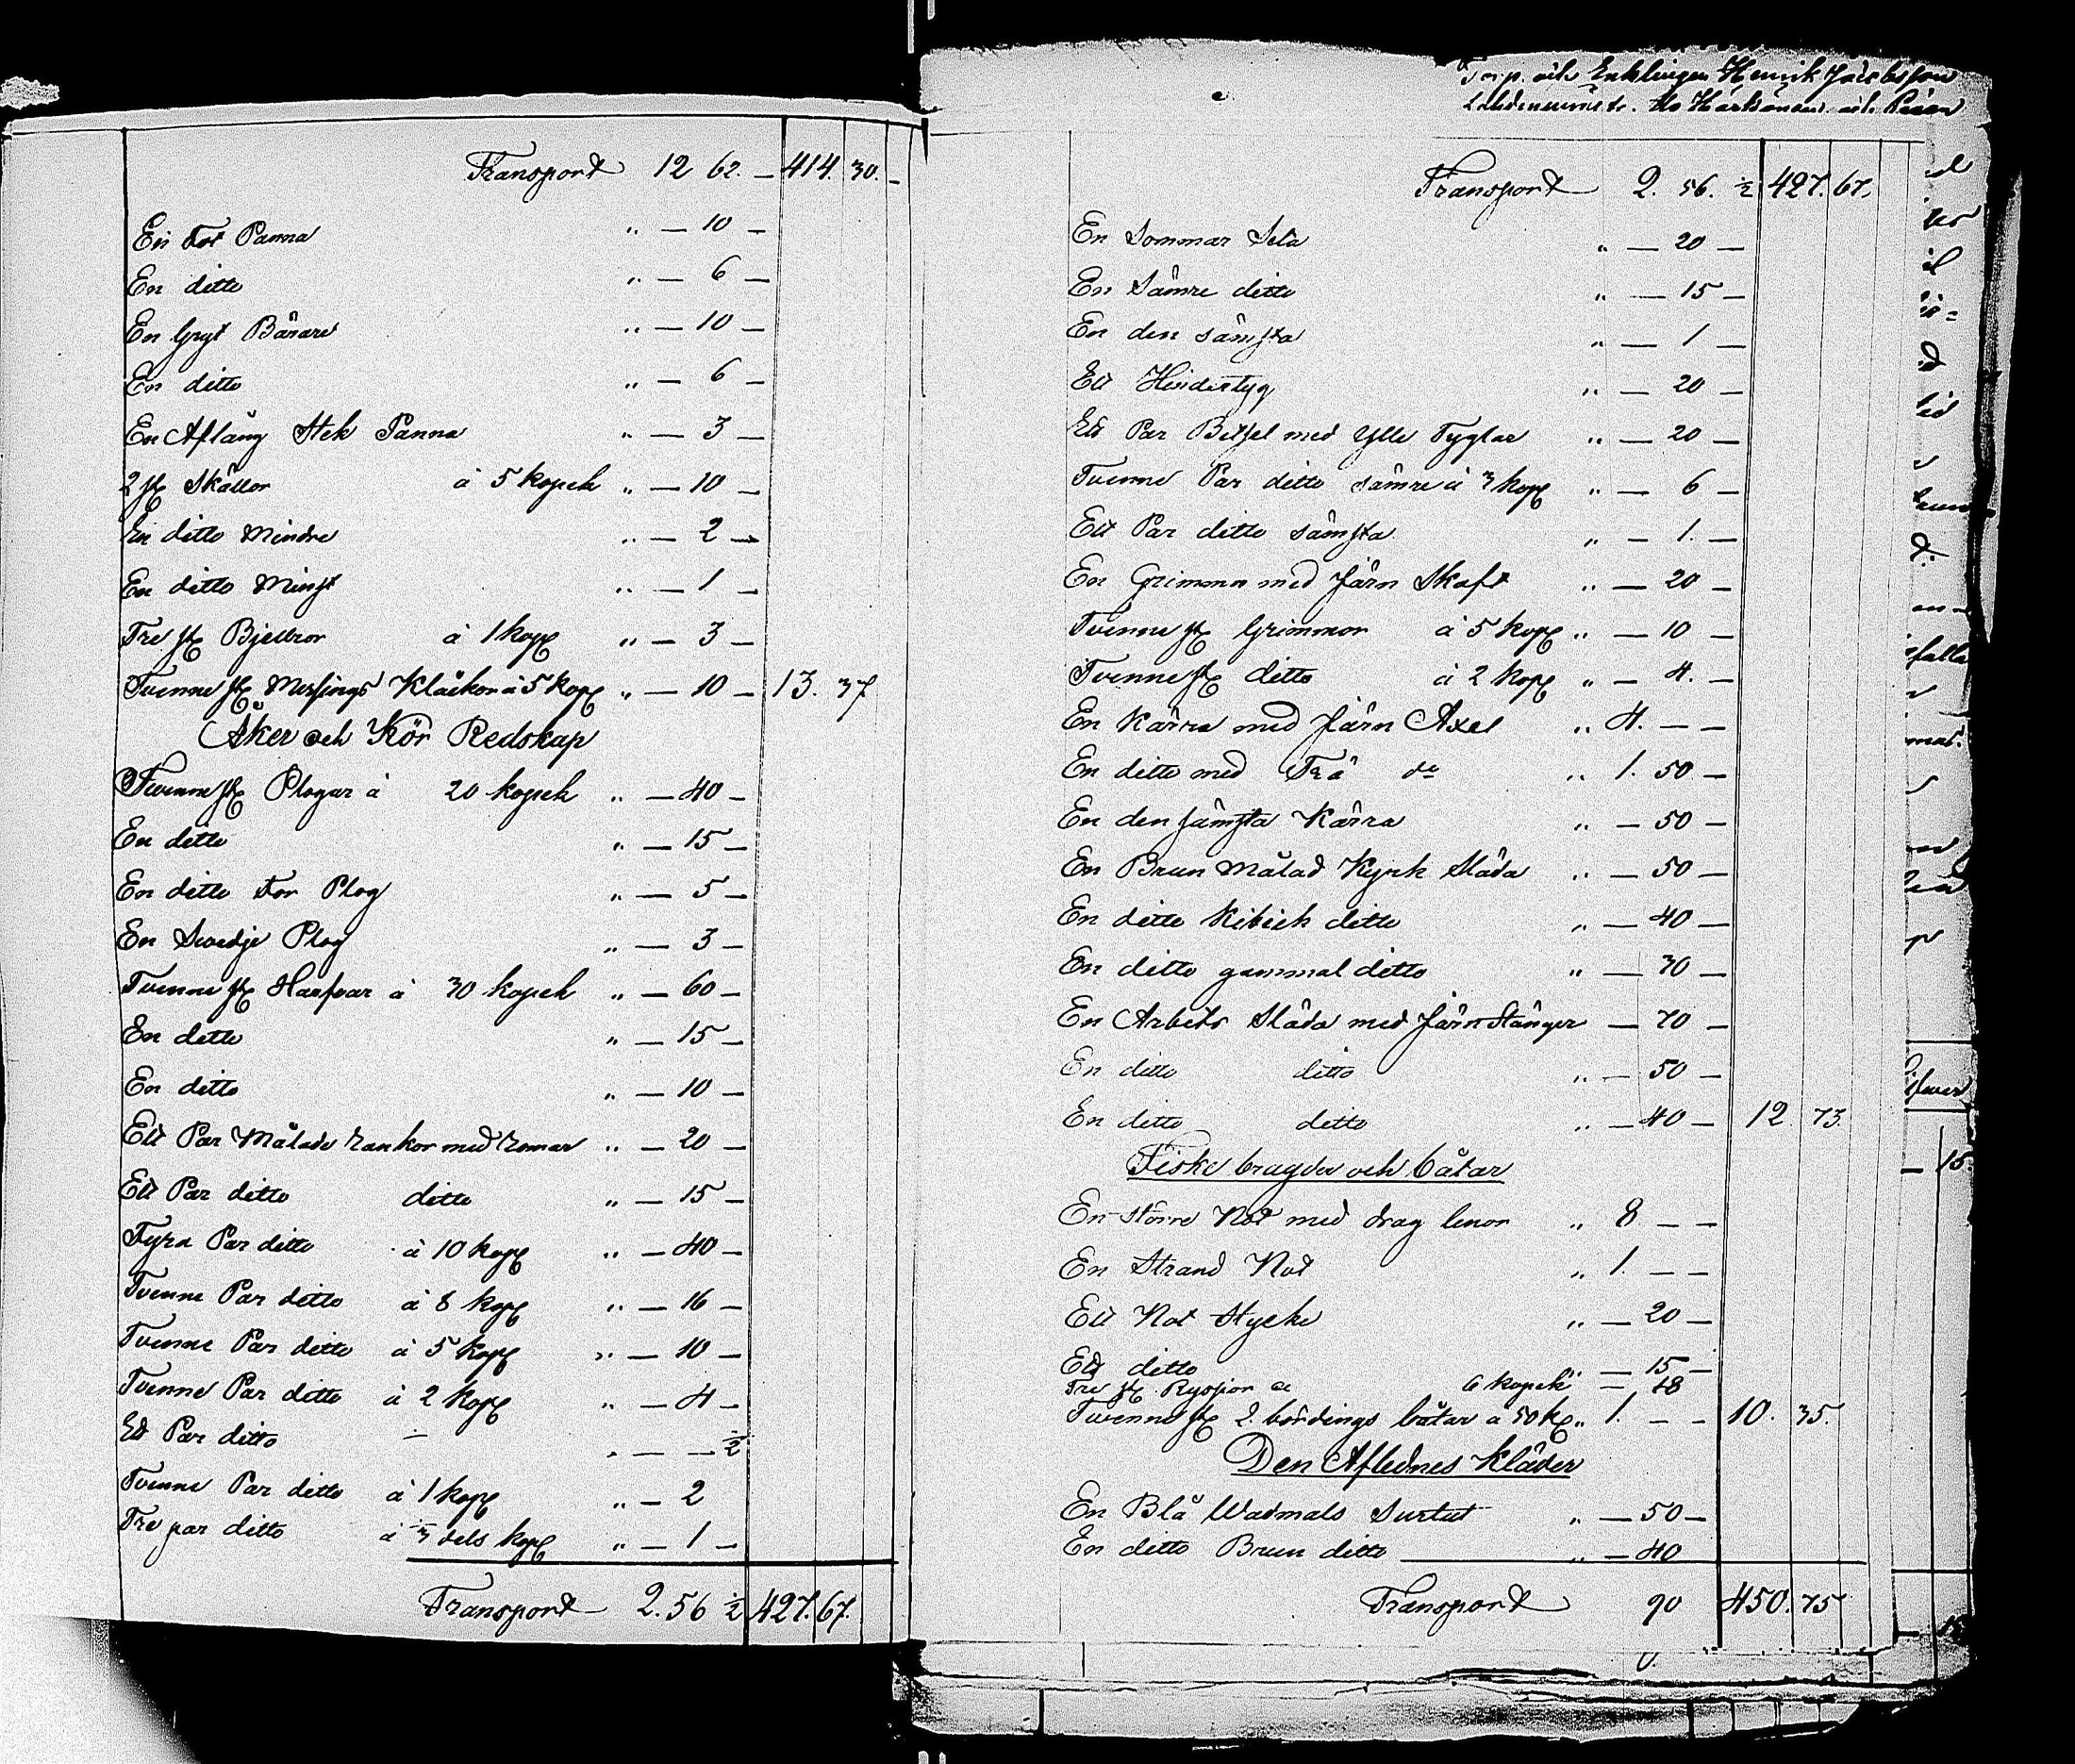 Transport 12 62. — 414. 30. —
En Fot Panna „ — 10 —
En ditto „ — 6 —
En Gryt Bärare „ — 10 —
En ditto „ — 6 —
En Aflång Stek Panna „ — 3 —
2 st Skållor à 5 kopek „ — 10 —
En ditto Mindre „ — 2 —
En ditto Minst „ — 1 —
Tre st Bjellror à 1 kop „ — 3 —
Tvenne st Messings Kläckor à 5 kop „ — 10 — 13. 37
Åker och Kör Redskap
Tvenne st Plogar à 20 kopek „ — 40 —
En ditto „ — 15 —
En ditto Tor Plog „ — 5 —
En Svedje Plog „ — 3 —
Tvenne st Harfvar à 30 kopek „ — 60 —
En ditto „ — 15 —
En ditto „ — 10 —
Ett Par Målade rankor med remar „ — 20 —
Ett Par ditto ditto „ — 15 —
Fyra Par ditto à 10 kop „ — 40 —
Tvenne Par ditto à 8 kop „ — 16 —
Tvenne Par ditto à 5 kop „ — 10 —
Tvenne Par ditto à 2 kop „ — 4 —
Ett Par ditto — „ — — ½
Tvenne Par ditto à 1 kop „ — 2
Tre par ditto à ⅓ dels kop „ — 1 —
Transport 2. 56 ½ 427. 67.
och Enklingen Henrik Jacobsson
Transport 2. 56. ½ 427. 67.
En Sommar Sela „ — 20 —
En Sämre ditto „ — 15 —
En den sämsta „ — 1 —
Ett Hindertyg „ — 20 —
Ett Par Betsel med Ylle Tyglar „ — 20 —
Tvenne Par ditto sämre à 3 kop „ — 6 —
Ett Par ditto sämsta „ — 1. —
En Grimma med Järn Skaft „ — 20 —
Tvenne st Grimmor à 5 kop „ — 10 —
Tvenne st ditto à 2 kop „ — 4. —
En Kärra med Järn Axel „ 4. — —
En ditto med Trä do „ 1. 50 —
En den sämsta Kärra „ — 50 —
En Brun Målad Kyrk Släda „ — 50 —
En ditto Kibick ditto „ — 40 —
En ditto gammal ditto „ — 30 —
En Arbets Släda med Järn Stänger — 70 —
En ditto ditto „ — 50 —
En ditto ditto „ — 40 — 12 73.
Fiske bragder och båtar
En större Not med drag linor „ 8 — —
En Strand Not „ 1. — —
Ett Not Stycke „ — 20 —
Ett ditto „ — 15 —
Tre st Ryssjor a 6 kopek — 18
Tvenne st 2. bördings båtar a 50 k „ 1. — — 10. 35.
Den Aflednes Kläder
En Blå Wadmals Surtut „ — 50 —
En ditto Brun ditto „ — 40
Transport 90 450. 75